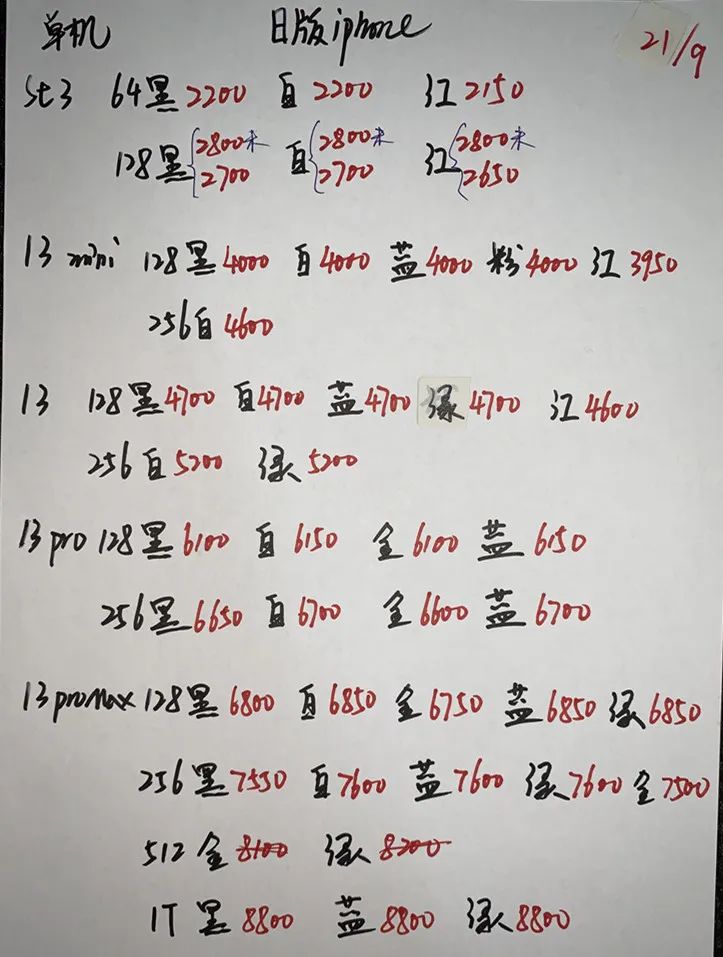 单机 日版iphone 21/9
Se3 64黑2200 白2200 红2150
128黑{2800未 白{2800未 红{2800未
2700 2700 2650
13 mini 128黑4000 白4000 蓝4000 粉4000 红3950
256白4600
13 128黑4700 白4700 蓝4700 绿4700 红4600
256白5200 绿5200
13pro 128黑6100 白6150 金6100 蓝6150
256黑6650 白6700 金6600 蓝6700
13promax 128黑6800 白6850 金6750 蓝6850 绿6850
256黑7550 白7600 蓝7600 绿7600 金7500
512金8100 绿8200
1T黑8800 蓝8800 绿8800